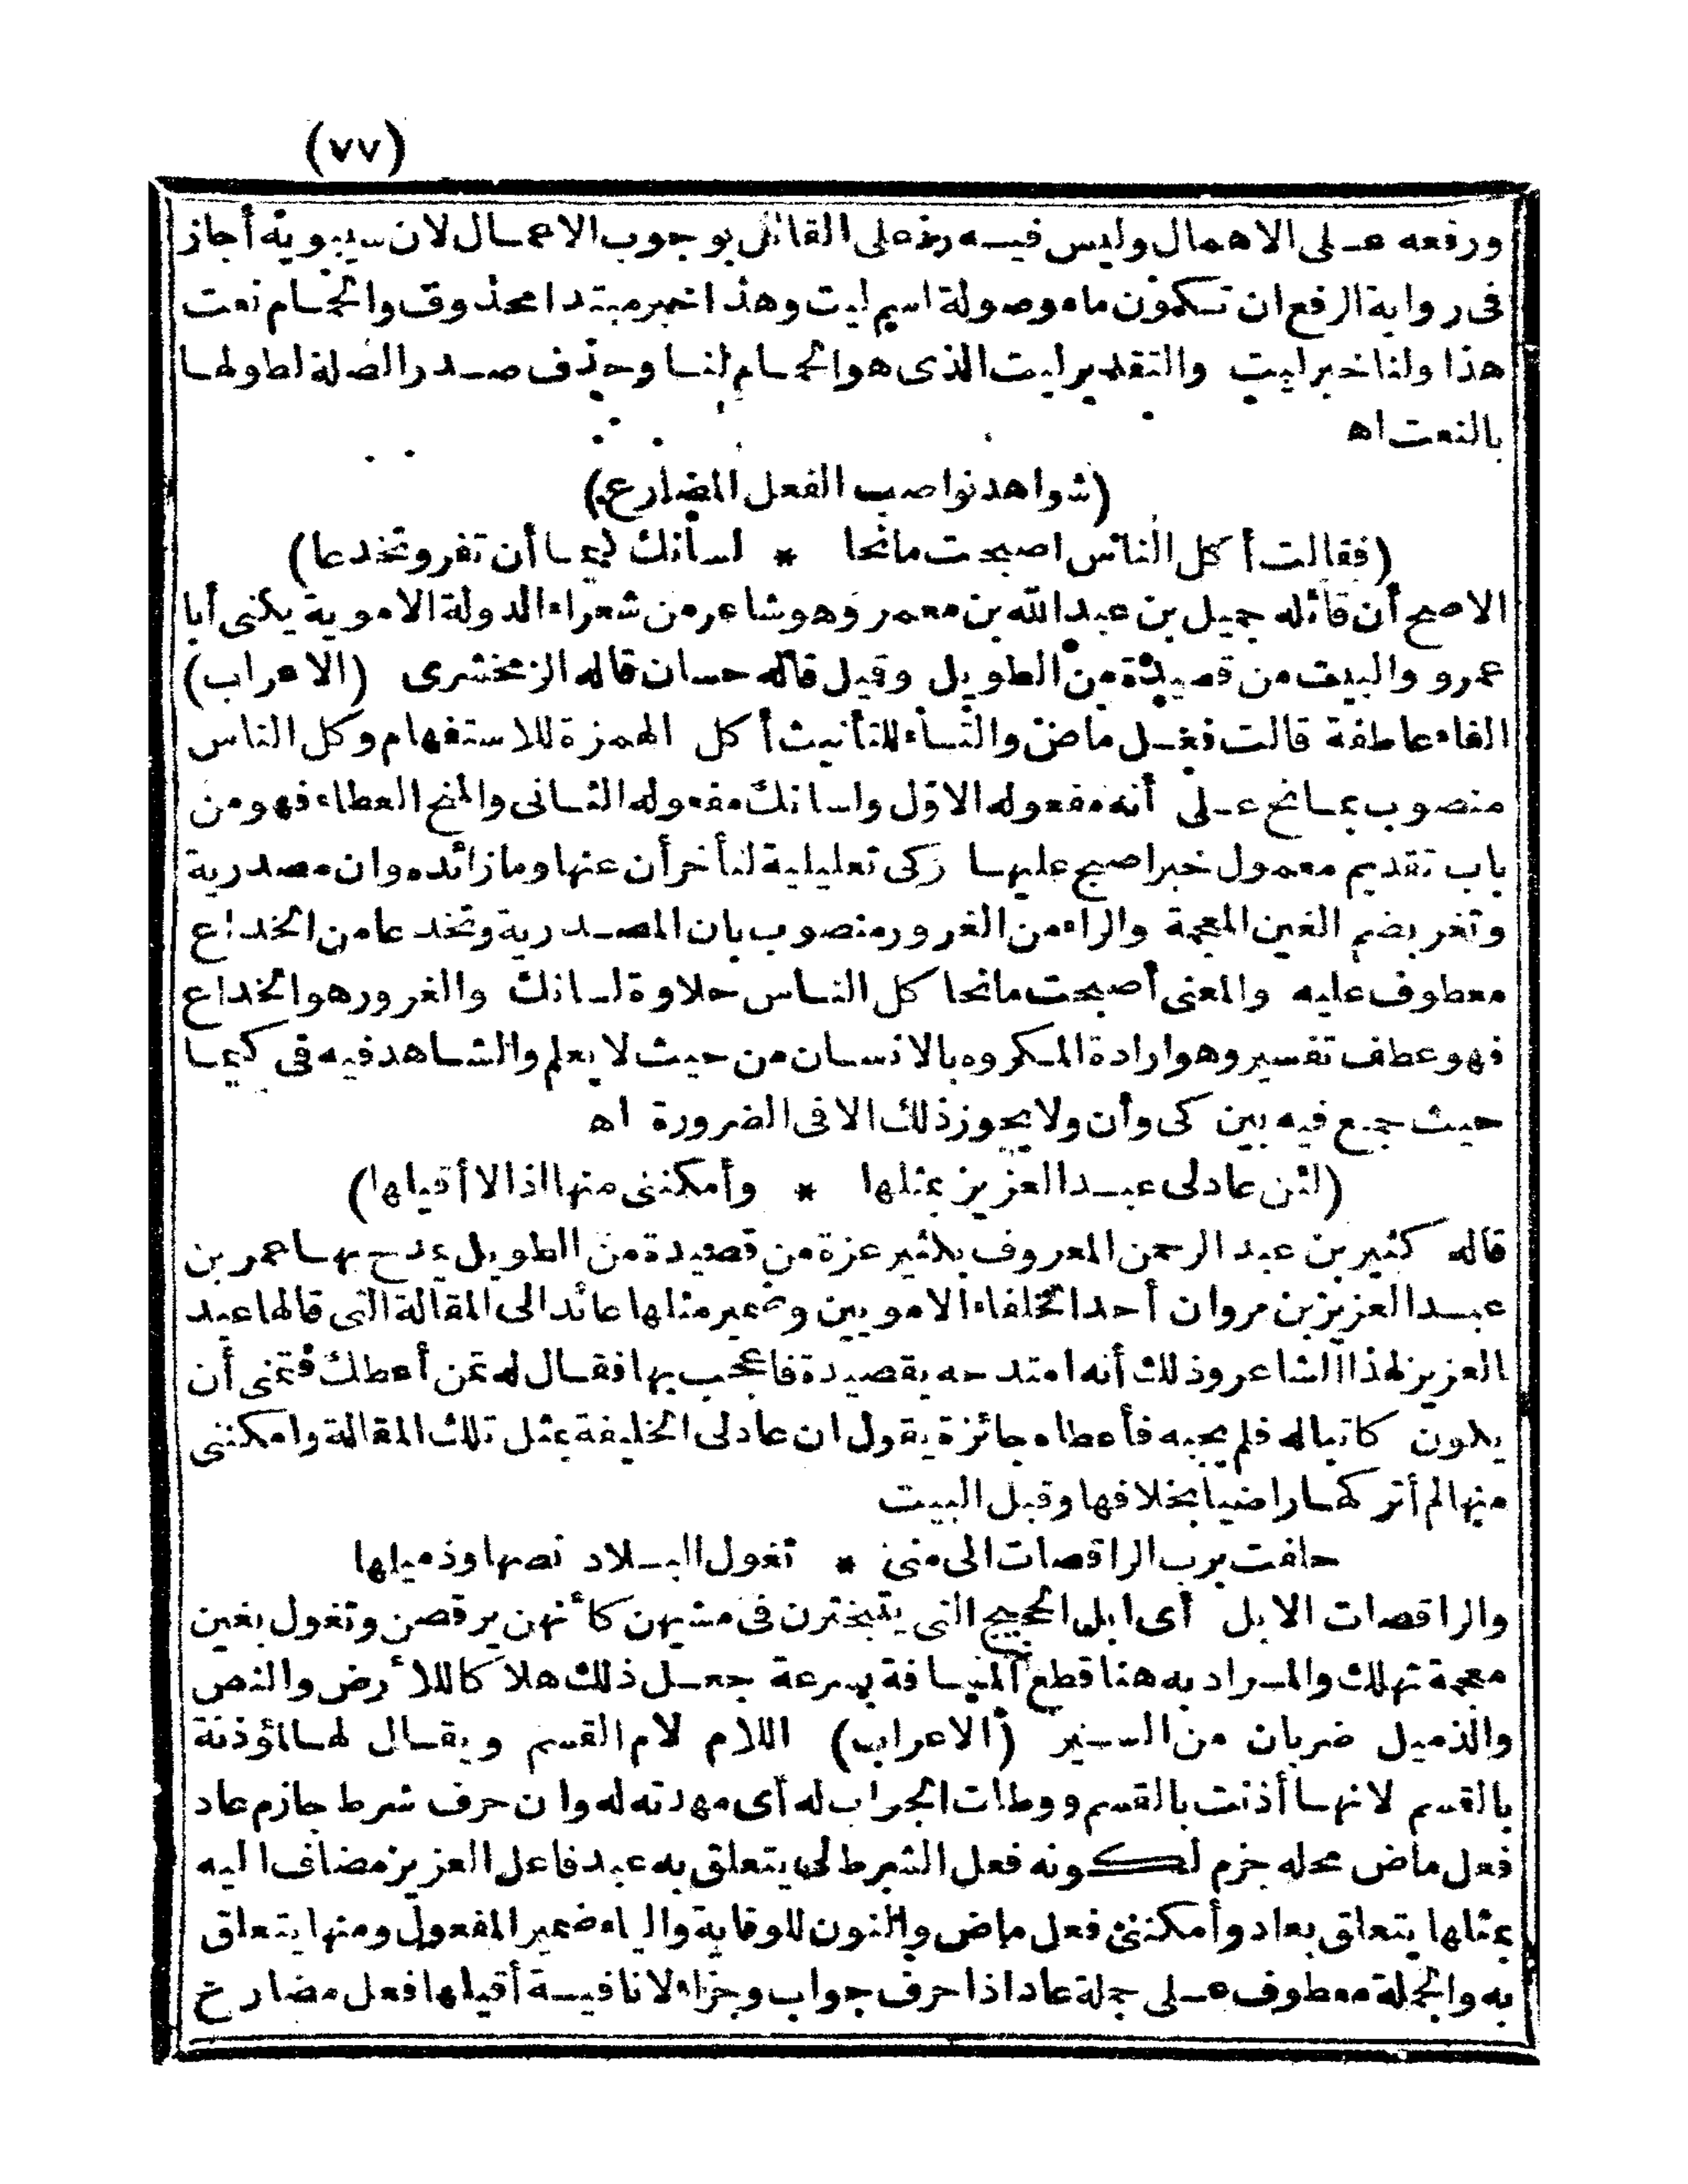 (٧٧)
ورفعه على الاهمال وليس فيه رد على القائل بوجوب الاعمال لان سيبويه أجاز
فى رواية الرفع ان تكون ما موصولة اسم ليت وهذا خبر مبتدا محذوف والحمام نعت
هذا ولنا خبر ليت والتقدير ليت الذى هو الحمام لنا وحذف صدر الصلة لطولها
بالنعت اه
(شواهد نواصب الفعل المضارع)
(فقالت أكل الناس اصبحت مانحا * لسانك كيما أن تغر وتخدعا)
الاصح أن قائله جميل بن عبد الله بن معمر وهو شاعر من شعراء الدولة الاموية يكنى أبا
عمرو والبيت من قصيدة من الطويل وقيل قاله حسان قاله الزمخشرى (الاعراب)
الفاء عاطفة قالت فعل ماض والتاء للتأنيث أكل الهمزة للاستفهام وكل الناس
منصوب بمانح على أنه مفعوله الاوّل ولسانك مفعوله الثانى والمنح العطاء فهو من
باب تقديم معمول خبر اصبح عليها زكى تعليلية لتأخر أن عنها وما زائده وان مصدرية
وتغر بضم الغين المعجمة والراء من الغرور منصوب بان المصدرية وتخدعا من الخداع
معطوف عليه والمعنى أصبحت مانحا كل الناس حلاوة لسانك والغرور هو الخداع
فهو عطف تفسير وهو ارادة المكروه بالانسان من حيث لا يعلم والشاهد فيه فى كيما
حيث جمع فيه بين كى وأن ولا يجوز ذلك الا فى الضرورة اه
(لئن عاد لى عبد العزيز بمثلها * وأمكننى منها اذا لا أقيلها)
قاله كثير بن عبد الرحمن المعروف بكثير عزة من قصيدة من الطويل يمدح بها عمر بن
عبد العزيز بن مروان أحد الخلفاء الامويين وضمير مثلها عائد الى المقالة التى قالها عبد
العزيز لهذا الشاعر وذلك أنه امتدحه بقصيدة فاعجب بها فقال له تمن أعطك فتمنى أن
يكون كاتبا له فلم يجبه فأعطاه جائزة يقول ان عاد لى الخليفة بمثل تلك المقالة وامكننى
منها لم أتركها راضيا بخلافها وقبل البيت
حلفت برب الراقصات الى منى * تغول البلاد نصها وذميلها
والراقصات الابل أى ابل الحجيج التى يتبخترن فى مشيهن كأنهن يرقصن وتغول بغين
معجمة تهلك والمراد به هنا قطع المسافة بسرعة جعل ذلك هلاكا للأرض والنص
والذميل ضربان من السير (الاعراب) اللام لام القسم ويقال لها المؤذنة
بالقسم لانها أذنت بالقسم ووطأت الجواب له أى مهدته له وان حرف شرط جازم عاد
فعل ماض محله جزم لكونه فعل الشرط لى يتعلق به عبد فاعل العزيز مضاف اليه
بمثلها يتعلق بعاد وأمكننى فعل ماض والنون للوقاية والياء ضمير المفعول ومنها يتعلق
به والجملة معطوف على جملة عاد اذا حرف جواب وجزاء لا نافية أقيلها فعل مضارع